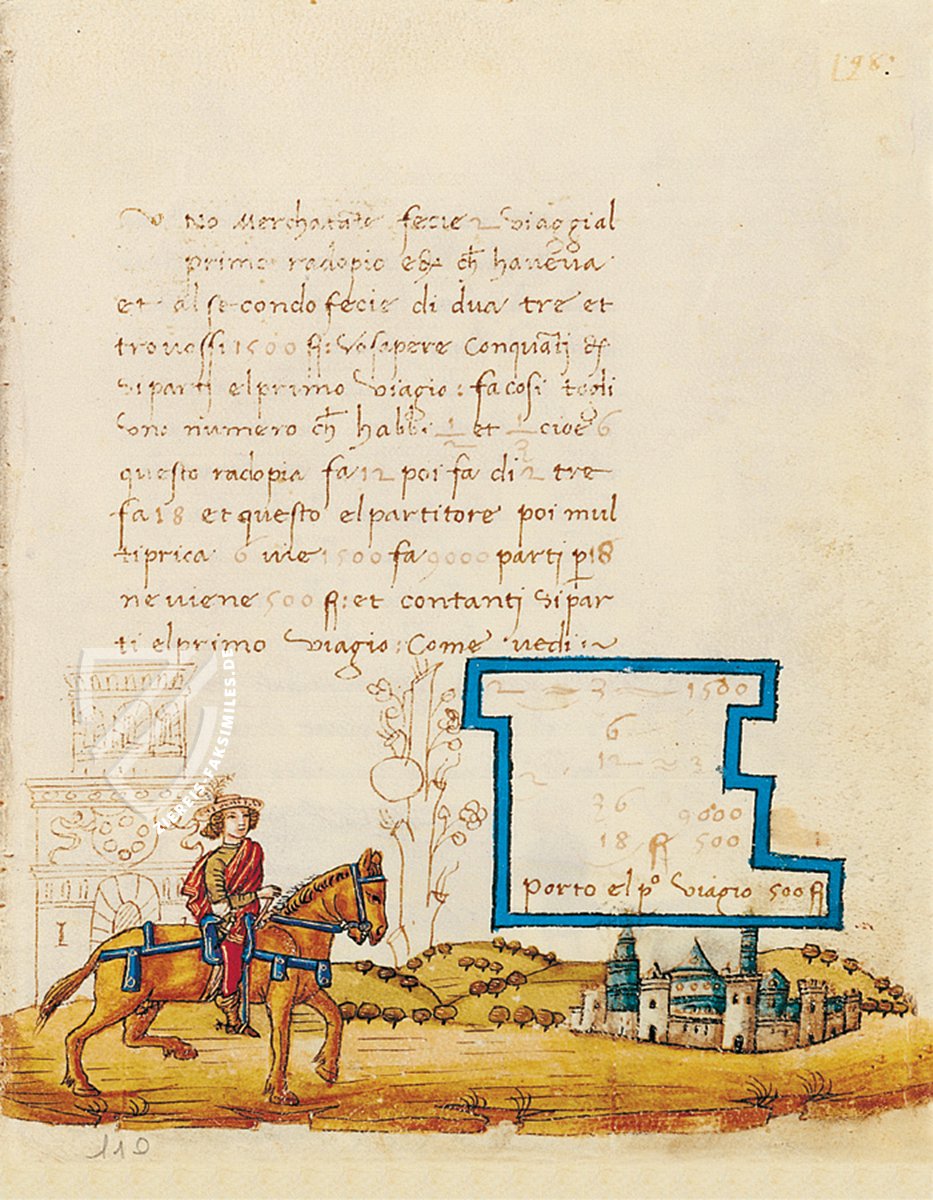 198
Uno Merchatate fecie 2 viaggi al
primo radopio e ch haveva
et al secondo fecie di dua tre et
trovossi 1500 ff: Vo sapere Conquati
si parti el primo viagio: fa cosi togli
uno numero ch habbi 1/2 et 1/3 cioe 6
questo radopia fa 12 poi fa di 2 tre
fa 18 et questo el partitore poi mul
tiprica 6 vie 1500 fa 9000 parti p 18
ne viene 500 ff: et contanti si par
ti el primo viagio: Come vedi
2 3 1500
6
12 3
2
36 9000
18 ff 500
porto el pº viagio 500 ff
ZIEREIS-FAKSIMILES.DE
119